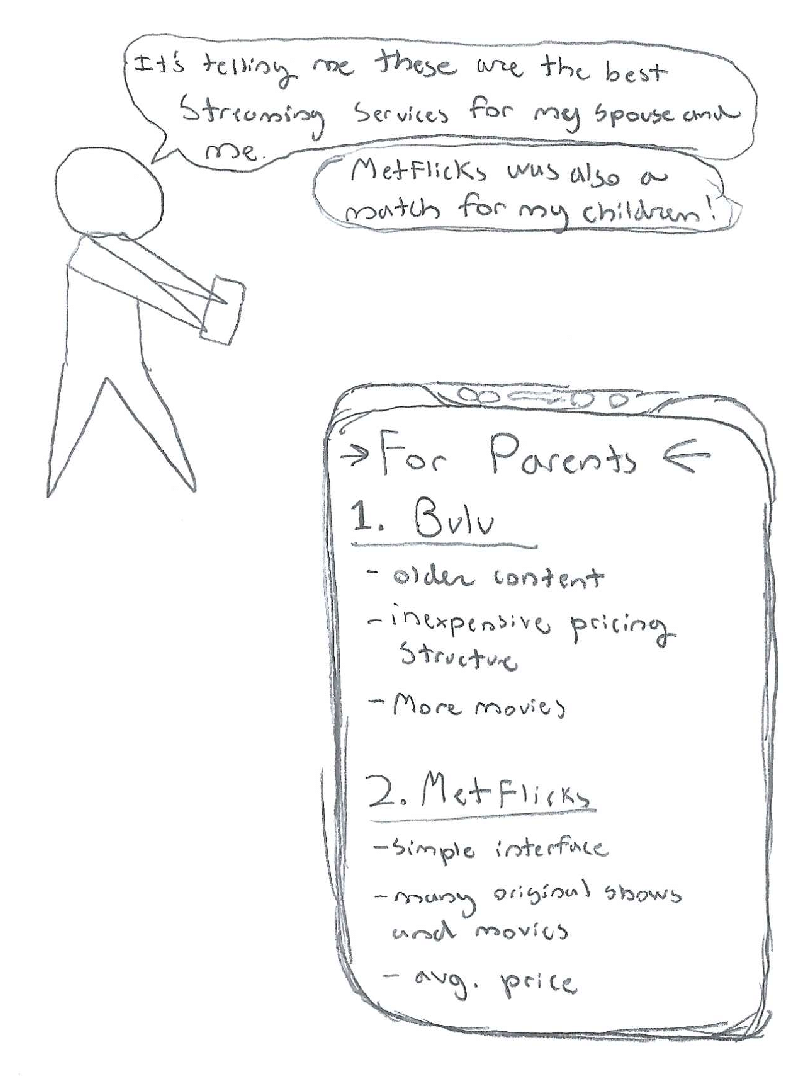 It's telling me these are the best
Streaming Services for my spouse and
me.
MetFlicks was also a
match for my children!
→For Parents←
1. Bulu
- older content
- inexpensive pricing
structure
- More movies
2. MetFlicks
- simple interface
- many original shows
and movies
- avg. price